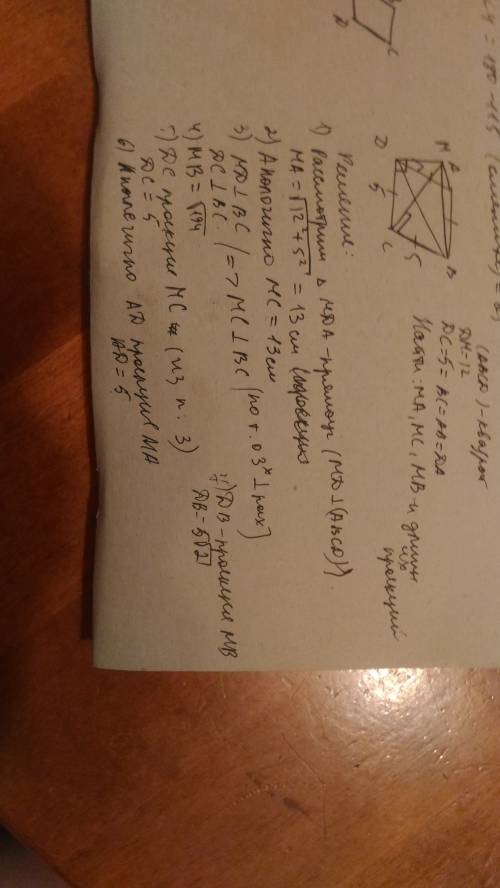 (ABCD) - квадрат
DM=12
DC=5=BC=AB=DA
Найти: MA, MC, MB и длины их проекций
M A
B
D
5
C
5
D
C
Решение:
1) Рассмотрим Δ MDA - прямоуг (MD⊥(ABCD)).
MA = √12²+5² = 13 см
2) Аналогично MC = 13 см
3) MD⊥BC
DC⊥BC | => MC⊥BC (по т. о 3ˣ ⊥рах)
4) MB = √194
5) DB - проекция MB
DB = 5√2
5) DC проекция MC (из п. 3)
DC = 5
6) Аналогично AD проекция MA
AD = 5